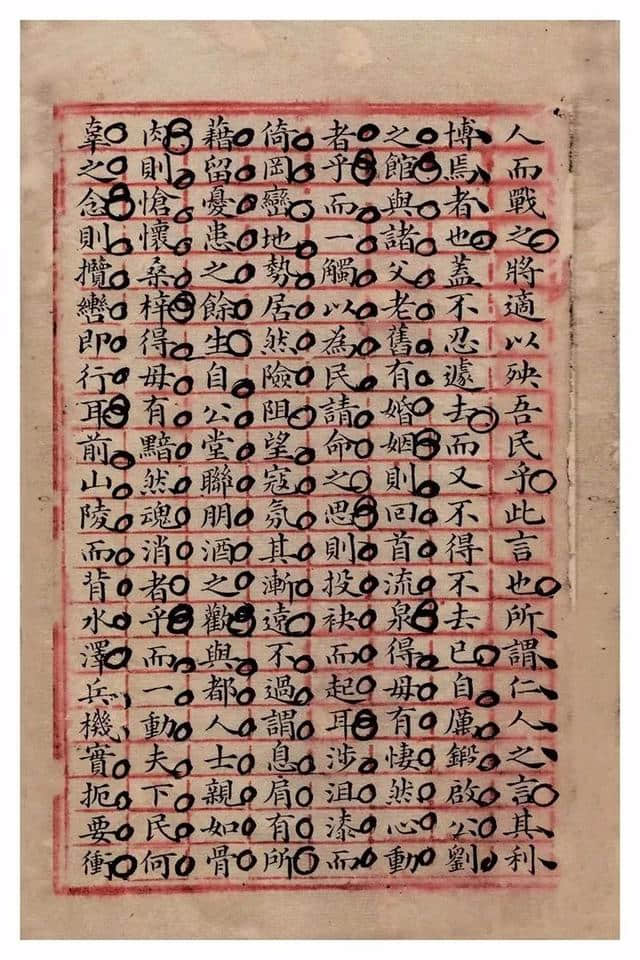 人而戰之將適以殃吾民乎此言也所謂仁人之言其利
博焉者也蓋不忍遽去而又不得不去已自厲鍛啟公劉
之館與諸父老舊有婚姻則回首流泉得毋有悽然心動
者乎而一觸以為民請命之思則投袂而起耳涉沮漆而
倚岡巒地勢居然險阻望寇氛其漸遠不過謂息肩有所
藉留憂患之餘生自公堂聯朋酒之歡與都人士親如骨
肉則愴懷桑梓得毋有黯然魂消者乎而一動夫下民何
辜之念則攬轡即行耳前山陵而背水澤兵機實扼要衝